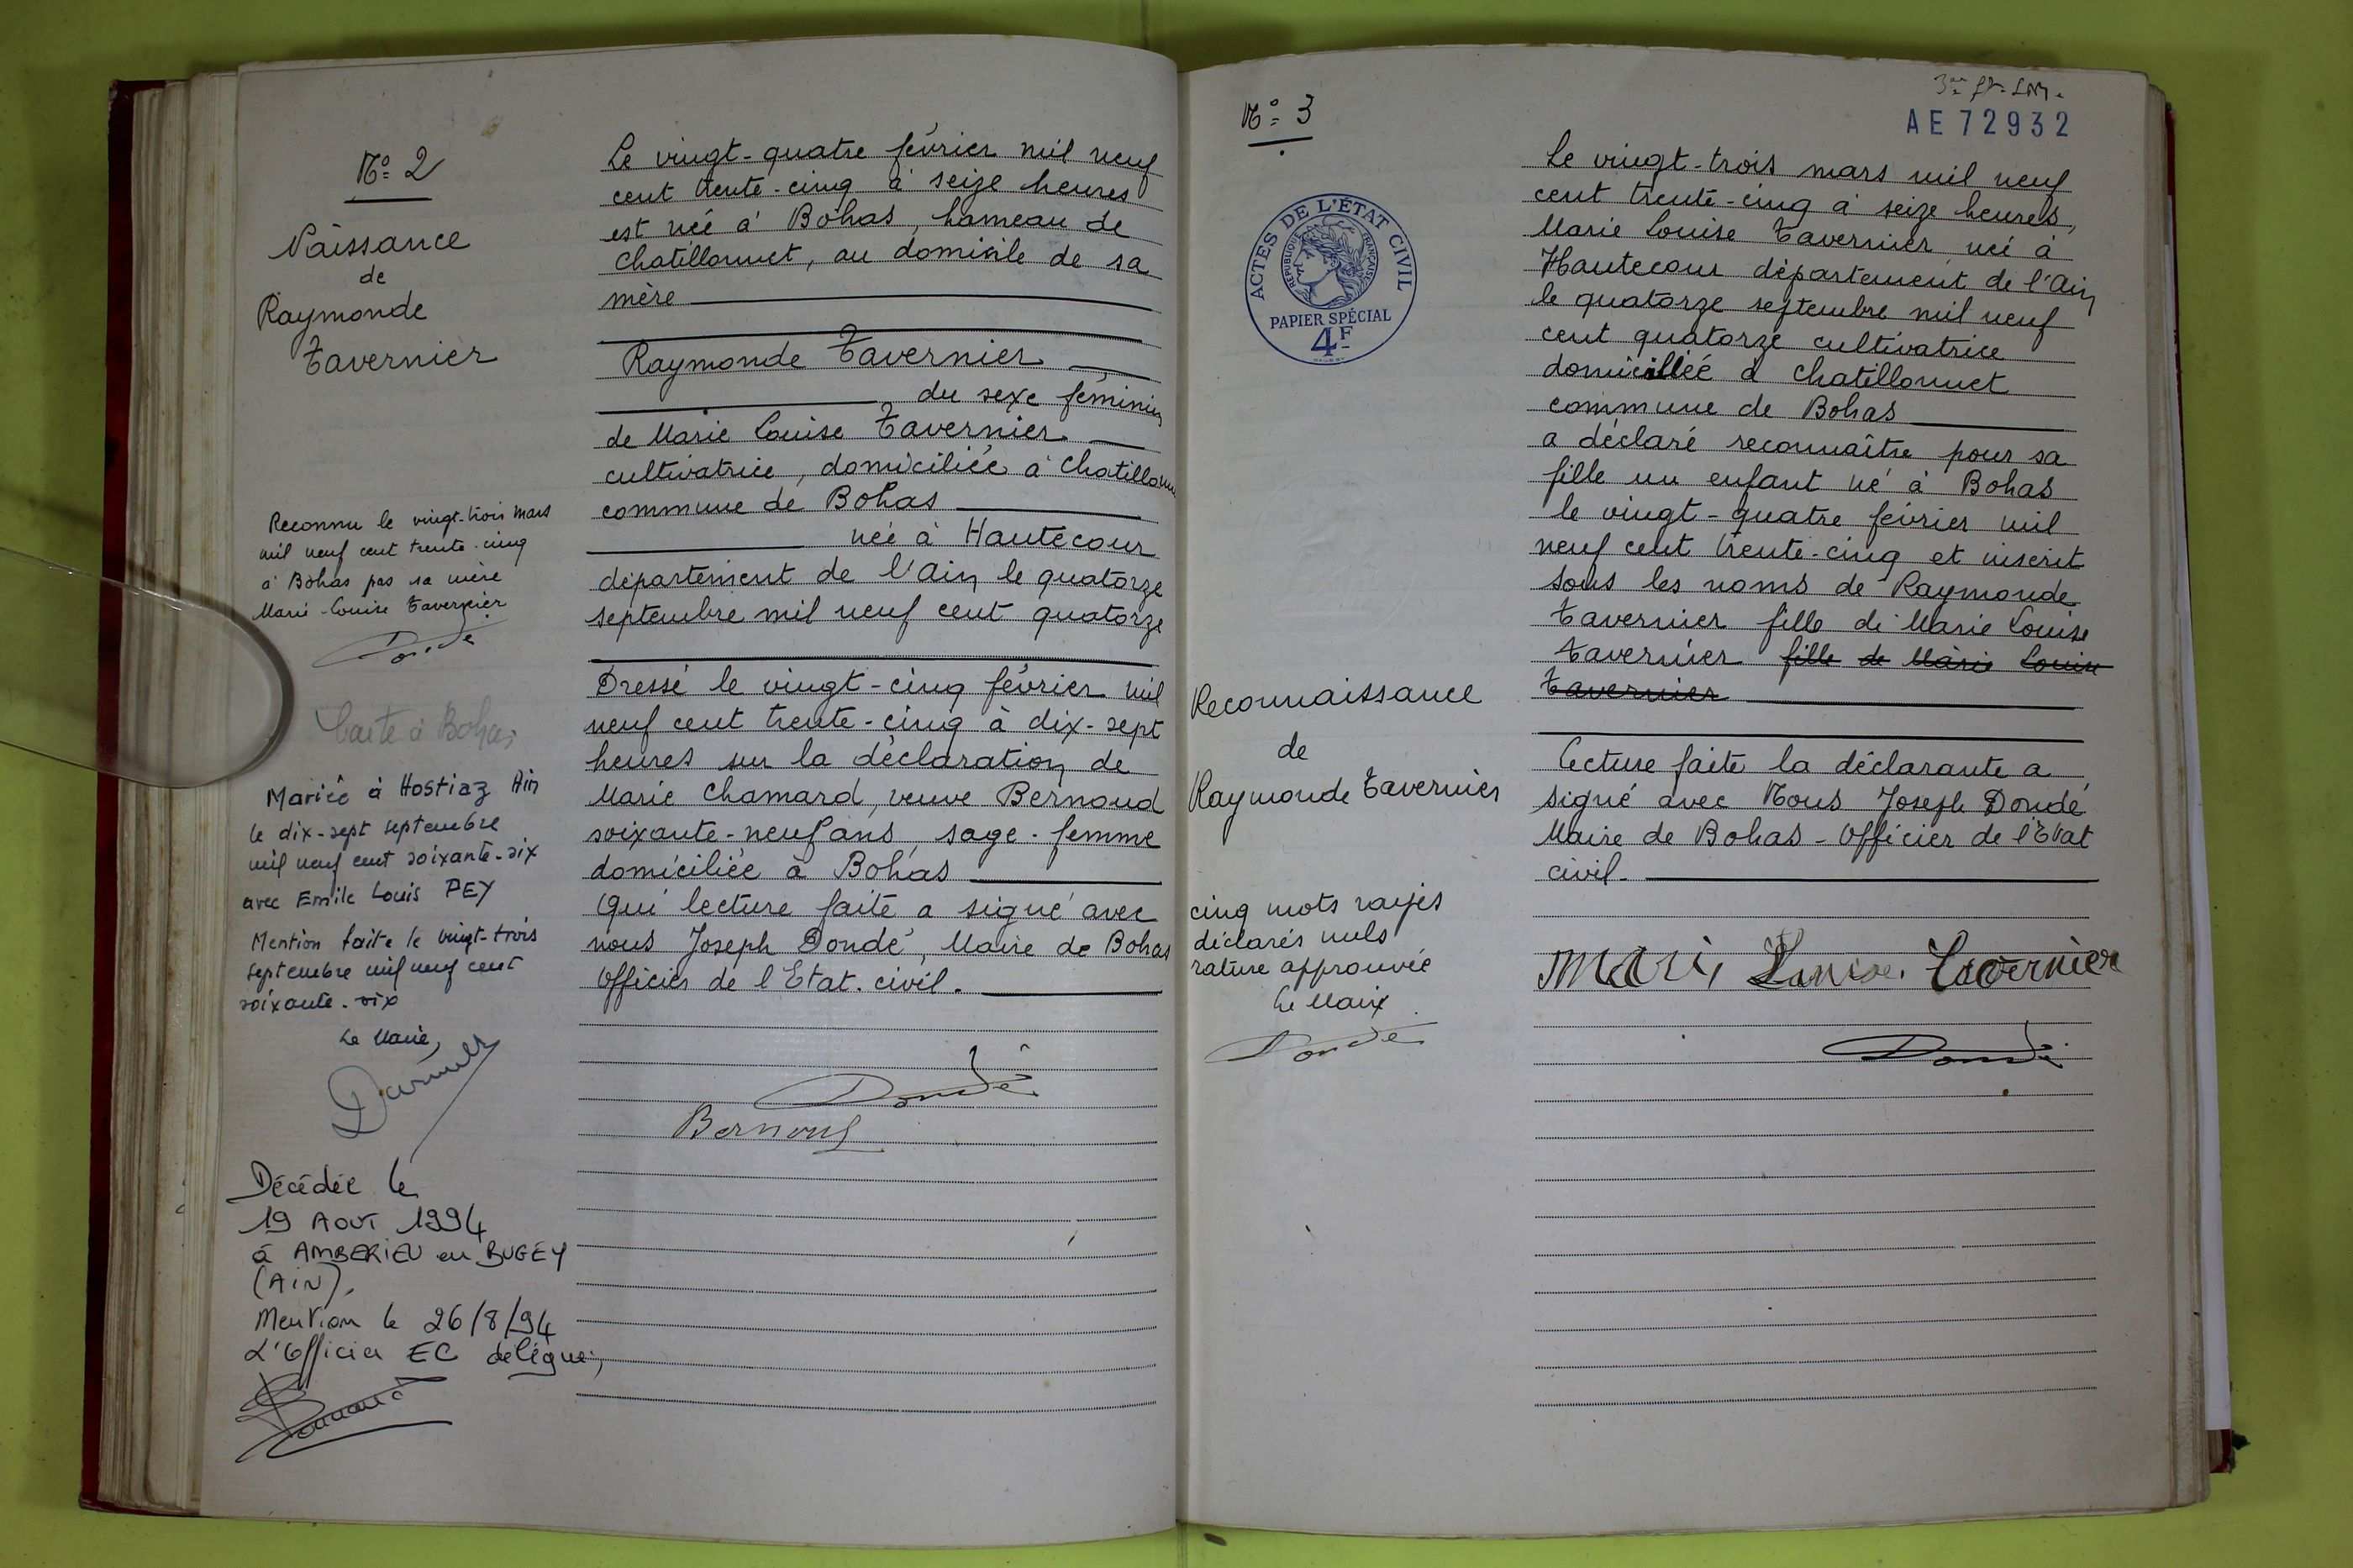 N° 2
Naissance
de
Raymonde
Tavernier
Reconnu le vingt-trois mars
mil neuf cent trente-cinq
à Bohas pas sa mère
Marie-Louise Tavernier
Dondé
Carte à Bohas
Mariée à Hostiaz Ain
le dix-sept septembre
mil neuf cent soixante-six
avec Emile Louis PEY
Mention faite le vingt-trois
septembre mil neuf cent
soixante-six
Le Maire,
Décédée le
19 AOUT 1994
à AMBERIEU en BUGEY
(AIN).
Mention le 26/8/94
L'Officier EC délégué,
Le vingt-quatre février mil neuf
cent trente-cinq à seize heures
est née à Bohas, hameau de
Chatillonnet, au domicile de sa
mère
Raymonde Tavernier
du sexe féminin
de Marie Louise Tavernier
cultivatrice, domiciliée à Chatillonnet
commune de Bohas
née à Hautecour
département de l'Ain le quatorze
septembre mil neuf cent quatorze
Dressé le vingt-cinq février mil
neuf cent trente-cinq à dix-sept
heures sur la déclaration de
Marie Chamard, veuve Bernoud
soixante-neuf ans, sage-femme
domiciliée à Bohas
Qui lecture faite a signé avec
nous Joseph Dondé, Maire de Bohas
Officier de l'Etat-civil.
Dondé
Bernoud
N° 3
ACTES DE L'ÉTAT CIVIL
RÉPUBLIQUE FRANÇAISE
PAPIER SPÉCIAL
4F
Reconnaissance
de
Raymonde Tavernier
cinq mots rayés
déclarés nuls
rature approuvée
Le Maire
Dondé
AE 72932
Le vingt-trois mars mil neuf
cent trente-cinq à seize heures,
Marie Louise Tavernier née à
Hautecour département de l'Ain
le quatorze septembre mil neuf
cent quatorze cultivatrice
domiciliée à Chatillonnet
commune de Bohas
a déclaré reconnaître pour sa
fille un enfant né à Bohas
le vingt-quatre février mil
neuf cent trente-cinq et inscrit
sous les noms de Raymonde
Tavernier fille de Marie Louise
Tavernier fille de Marie Louise
Tavernier
Lecture faite la déclarante a
signé avec Nous Joseph Dondé
Maire de Bohas - Officier de l'Etat
civil.
Marie Louise Tavernier
Dondé